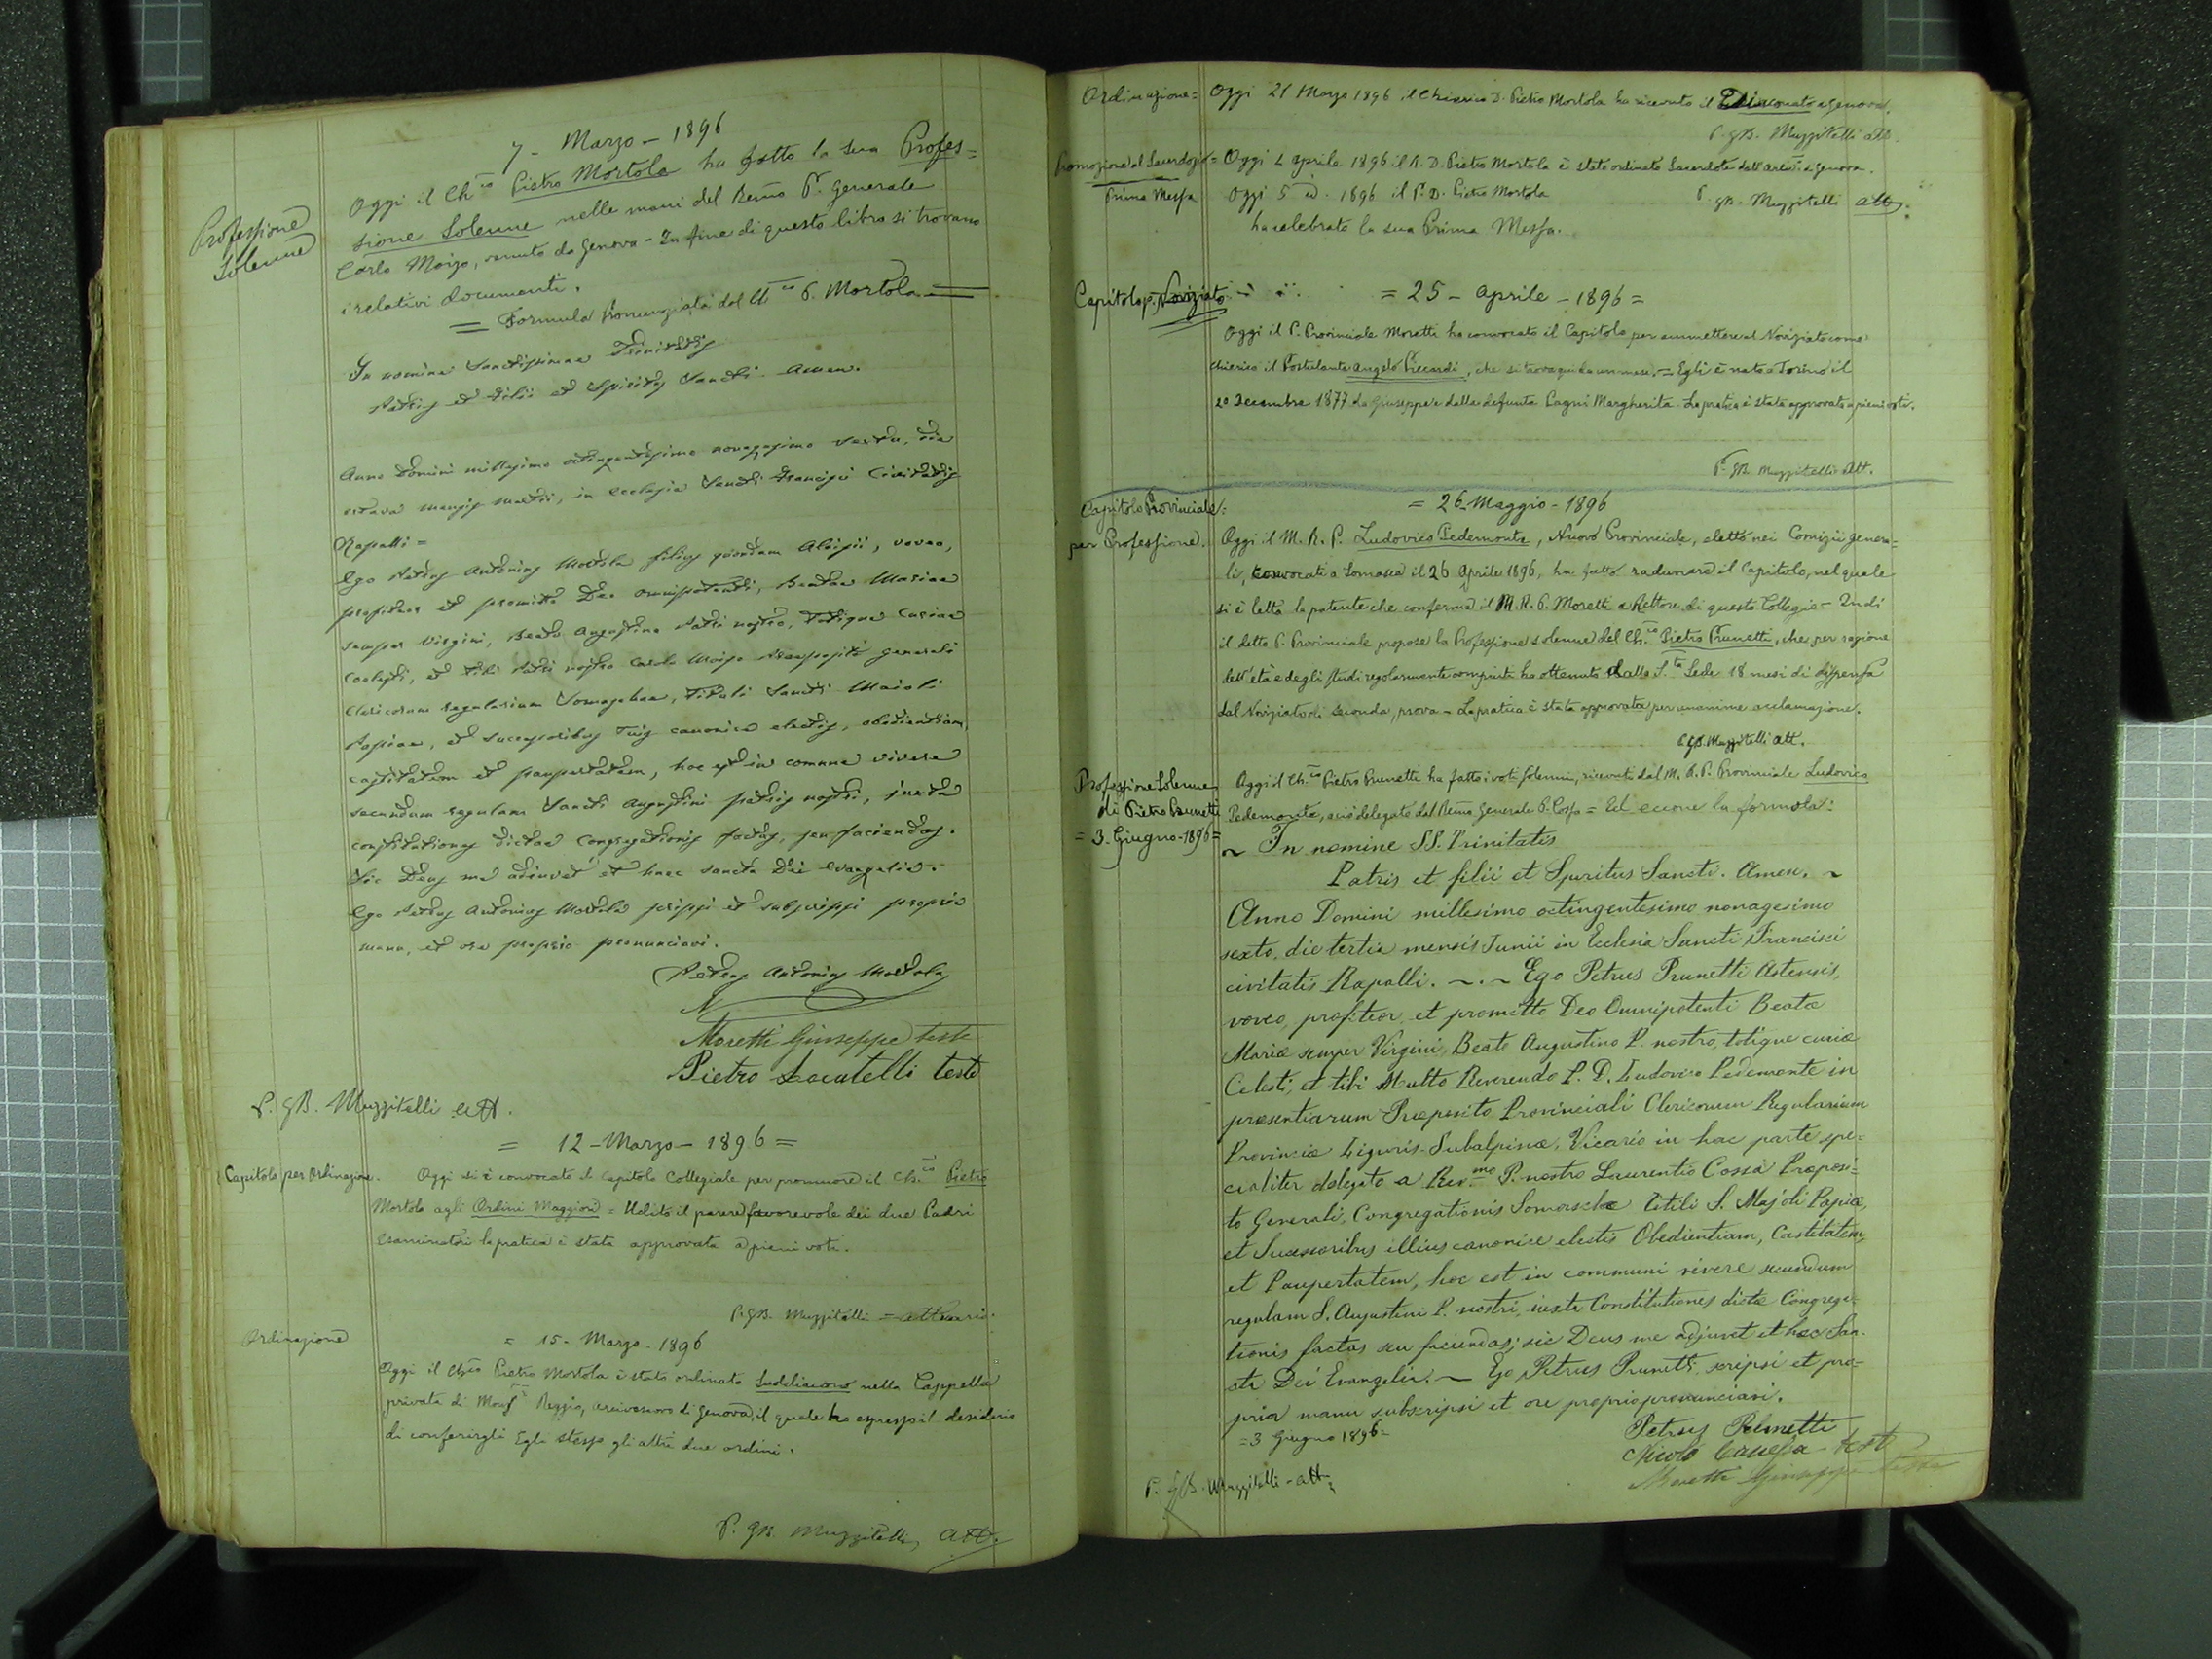 7 - Marzo - 1896
Professione
Solenne
Oggi il Ch.co Pietro Mortola ha fatto la sua Profes=
sione Solenne nelle mani del Remo P. Generale
Carlo Moizo, venuto da Genova - In fine di questo libro si trovano
i relativi documenti.
= Formula pronunziata dal Ch.co P. Mortola =
In nomine Sanctissimae Trinitatis
Patris et Filii et Spiritus Sancti. Amen.
Anno Domini millesimo octingentesimo nonagesimo sexto, die
octava mensis Martii, in ecclesia Sancti Francisci Civitatis
Rapalli =
Ego Petrus Antonius Mortola filius quondam Aloisii, voveo,
profiteor et promitto Deo omnipotenti, Beatae Mariae
semper Virgini, Beato Augustino Patri nostro, totique Curiae
coelesti, et tibi Patri nostro Carolo Moizo Praeposito generali
Clericorum regularium Somaschae, Tituli Sancti Maioli
Papiae, et successoribus tuis canonice electis, obedientiam,
castitatem et paupertatem, hoc est in comune vivere
secundum regulam Sancti Augustini patris nostri, juxta
constitutiones dictae Congregationis factas, seu faciendas.
Sic Deus me adiuvet et haec sancta Dei evangelia.
Ego Petrus Antonius Mortola scripsi et subscripsi propria
manu, et ore proprio pronunciavi.
Petrus Antonius Mortola
Moretti Giuseppe teste
Pietro Locatelli teste
P. GB. Muzzitelli att.
= 12 - Marzo - 1896 =
Capitolo per Ordinazione. Oggi si è convocato il Capitolo Collegiale per promuore il Ch.co Pietro
Mortola agli Ordini Maggiori = Udito il parere favorevole dei due Padri
esaminatori la pratica è stata approvata a pieni voti.
P. GB. Muzzitelli = attuario.
Ordinazione
= 15 - Marzo - 1896
Oggi il Ch.co Pietro Mortola è stato ordinato Suddiacono nella Cappella
privata di Mons.r Reggio, arcivescovo di Genova, il quale ha espresso il desiderio
di conferirgli Egli stesso gli altri due ordini.
P. GB. Muzzitelli, att.
Ordinazione = Oggi 21 Marzo 1896 il Chierico D. Pietro Mortola ha ricevuto il Diaconato a Genova.
P. GB. Muzzitelli att.
Promozione al Sacerdozio = Oggi 4 aprile 1896 il R. D. Pietro Mortola è stato ordinato Sacerdote dall'Arciv. a Genova.
Prima Messa Oggi 5 id. 1896 il P. D. Pietro Mortola
P. GB. Muzzitelli att.
ha celebrato la sua Prima Messa.
Capitolo p. Noviziato = 25 - Aprile - 1896 =
Oggi il P. Provinciale Moretti ha convocato il Capitolo per ammettere al Noviziato come
chierico il Postulante Angelo , che si trova qui da un mese. = Egli è nato a Torino il
20 Decembre 1877 da Giuseppe e dalla defunta Margherita. La pratica è stata approvata a pieni voti.
P. GB. Muzzitelli Att.
Capitolo Provinciale = = 26 - Maggio - 1896
per Professione. Oggi il M. R. P. Ludovico Pedemonte, Nuovo Provinciale, eletto nei Comizii genera=
li, convocati a Somasca il 26 Aprile 1896, ha fatto radunare il Capitolo, nel quale
si è letta la patente che conferma il M. R. P. Moretti a Rettore di questo Collegio - Indi
il detto P. Provinciale propose la Professione solenne del Ch.co Pietro Prunetti, che per ragione
dell'età e degli studi regolarmente compiuti ha ottenuto dalla S.ta Sede 18 mesi di dispensa
dal Noviziato di seconda prova - La pratica è stata approvata per unanime acclamazione.
P. GB. Muzzitelli att.
Professione Solenne
di Pietro Prunetti
= 3. Giugno - 1896 =
Oggi il Ch.co Pietro Prunetti ha fatto i voti solenni, ricevuti dal M. R. P. Provinciale Ludovico
Pedemonte, a ciò delegato dal Remo Generale P. Cossa = Ed eccone la formola:
~ In nomine SS. Trinitatis
Patris et filii et Spiritus Sancti. Amen. ~
Anno Domini millesimo octingentesimo nonagesimo
sexto, die tertia mensis Junii in Ecclesia Sancti Francisci
civitatis Rapalli. ~ . ~ Ego Petrus Prunetti Astensis,
voveo, profiteor, et promitto Deo Omnipotenti Beatæ
Mariæ semper Virgini, Beato Augustino P. nostro, totique curiæ
Celesti, et tibi Multo Reverendo P. D. Ludovico Pedemonte in
præsentiarum Præposito Provinciali Clericorum Regularium
Provinciæ Liguris-Subalpinæ, Vicario in hac parte spe=
cialiter delegato a Rev.mo P. nostro Laurentio Cossa Præposi=
to Generali, Congregationis Somaschæ tituli S. Majoli Papiæ,
et Successoribus illius canonice electis Obedientiam, Castitatem,
et Paupertatem, hoc est in communi vivere secundum
regulam S. Augustini P. nostri, iuxta Constitutiones dictæ Congrega=
tionis factas seu faciendas; sic Deus me adjuvet et hæc San=
cta Dei Evangelia. ~ Ego Petrus Prunetti scripsi et pro=
pria manu subscripsi et ore proprio pronunciavi.
= 3 Giugno 1896 =
Petrus Prunetti
Nicolò Canessa teste
Moretti Giuseppe teste
P. GB. Muzzitelli - att.